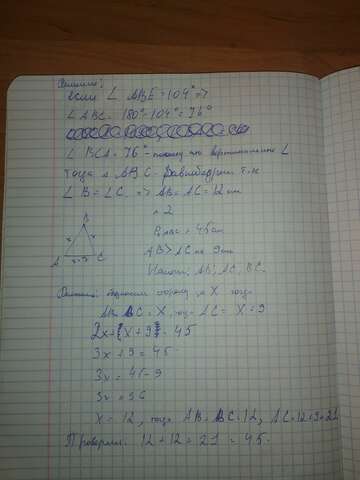 Решение:
если ∠ ABE = 104° =>
∠ ABC = 180° - 104° = 76°
∠ BCA = 76° - потому что вертикальные ∠
Тогда △ ABC - равнобедрен. т.к
∠ B = ∠ C => AB = AC = 12 см
№ 2
B
x x
A x+9 C
P△ABC = 45 см
AB > AC на 9 см
Найти: AB; AC; BC.
Решение: X, тогда
AB = BC = X, тогда AC = X + 9
2x + (x + 9) = 45
3x + 9 = 45
3x = 45 - 9
3x = 36
x = 12, тогда AB = BC = 12, AC = 12 + 9 = 21
Проверим: 12 + 12 + 21 = 45.